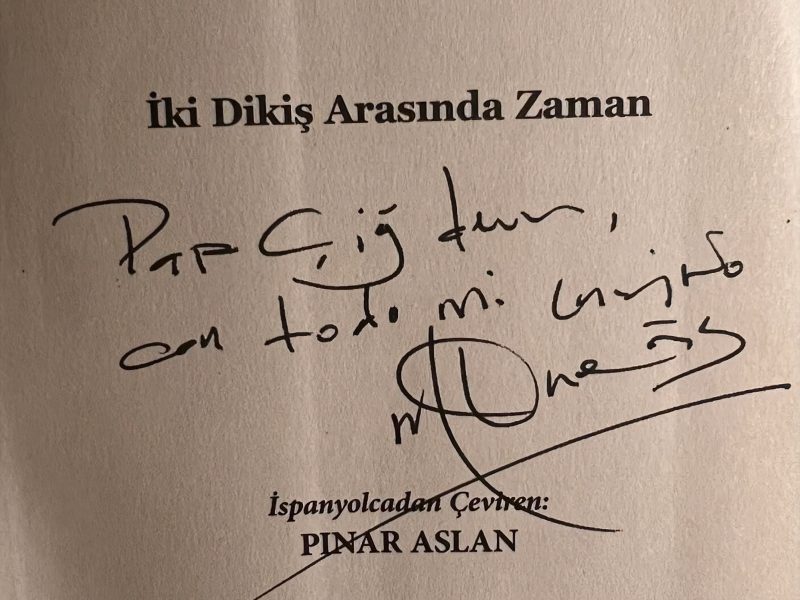 İki Dikiş Arasında Zaman
Para Çiğdem,
con todo mi cariño
M Dueñas
İspanyolcadan Çeviren:
PINAR ASLAN